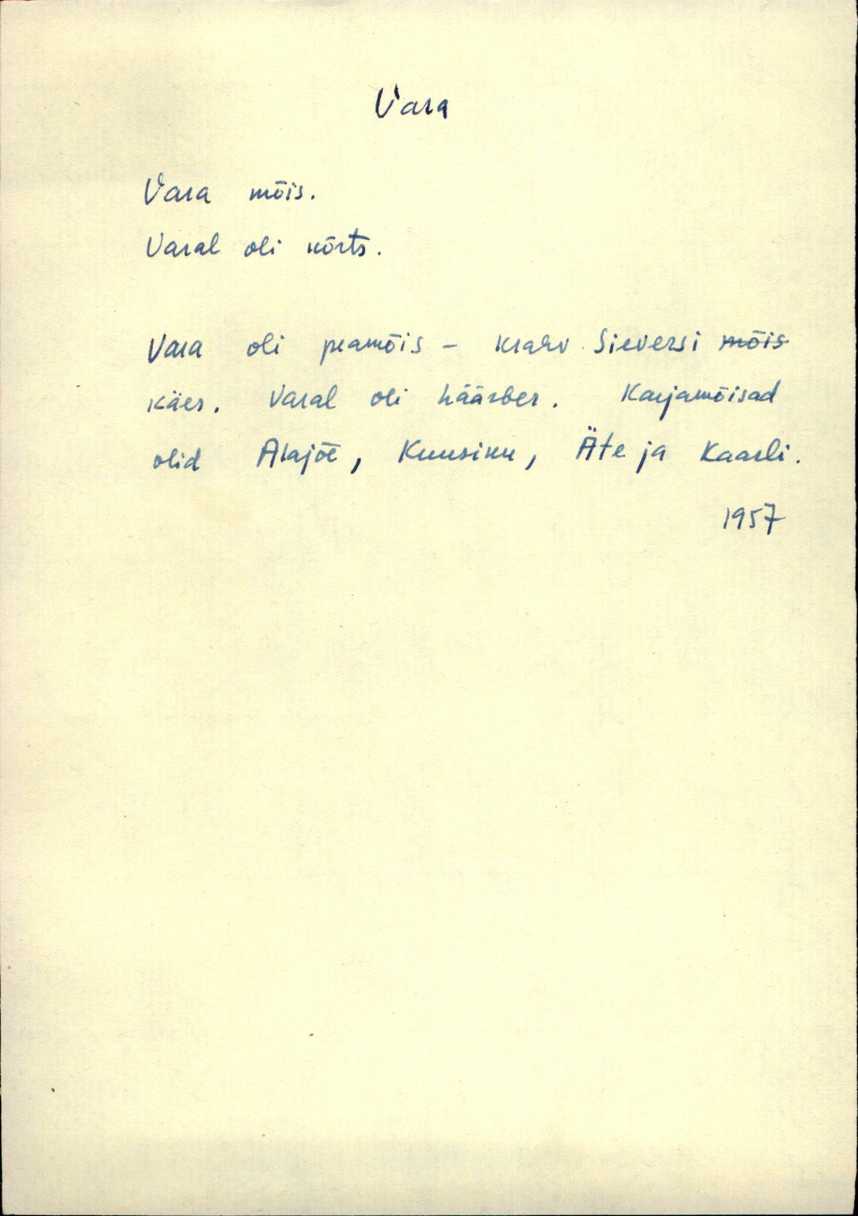 Vara
Vara mõis.
Varal oli kõrts.
Vara oli peamõis - krahv Sieversi mõis
käes. Varal oli häärber. Karjamõisad
olid Alajõe, Kuusiku, Äte ja Kaarli.
1957